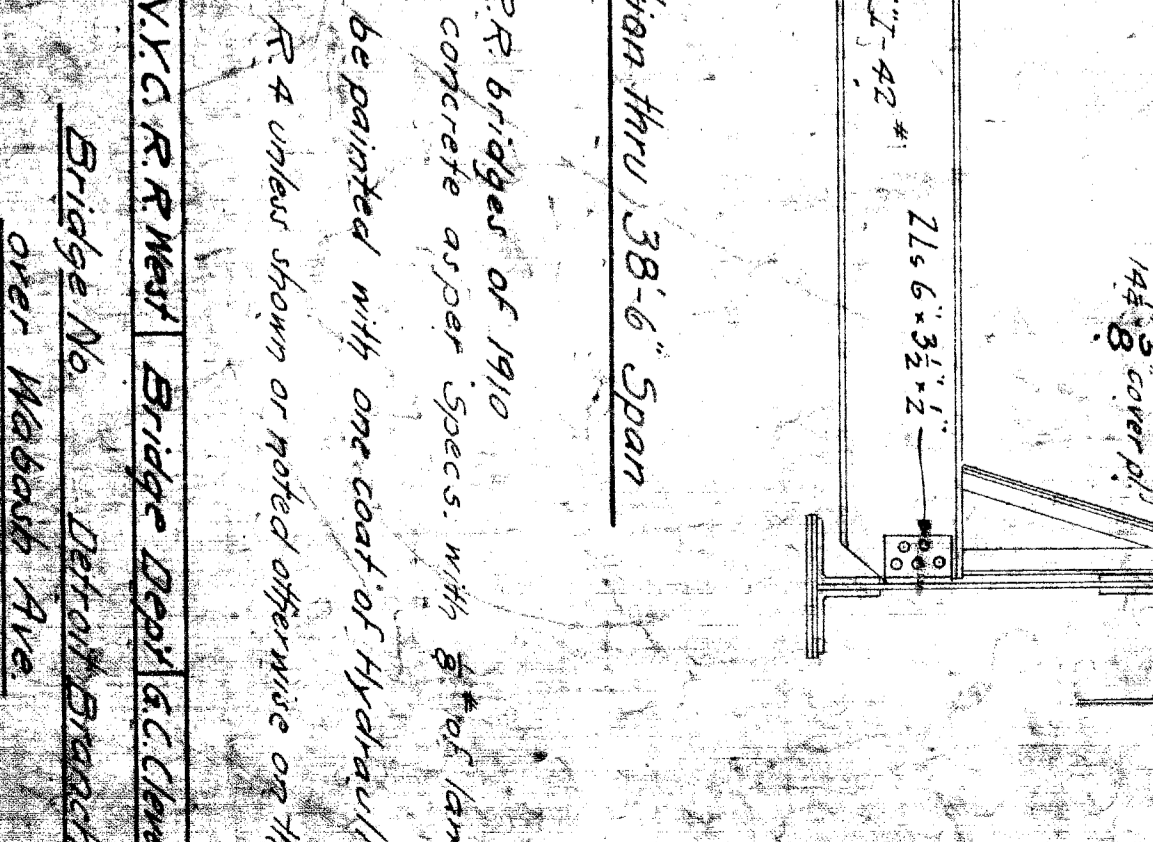 14 1/8" × 3/8" cover pl.
"I-42#
2Ls 6" × 3 1/2" × 1/2"
thru 38'-6" Span
R. bridges of 1910
concrete as per Specs. with 1/8# of lam
be painted with one coat of Hydrauli
R. 4 unless shown or noted otherwise on th
N.Y.C.R.R. West | Bridge Dept | G.C. Cleve
Bridge No. Detroit Branch
over Wabash Ave.